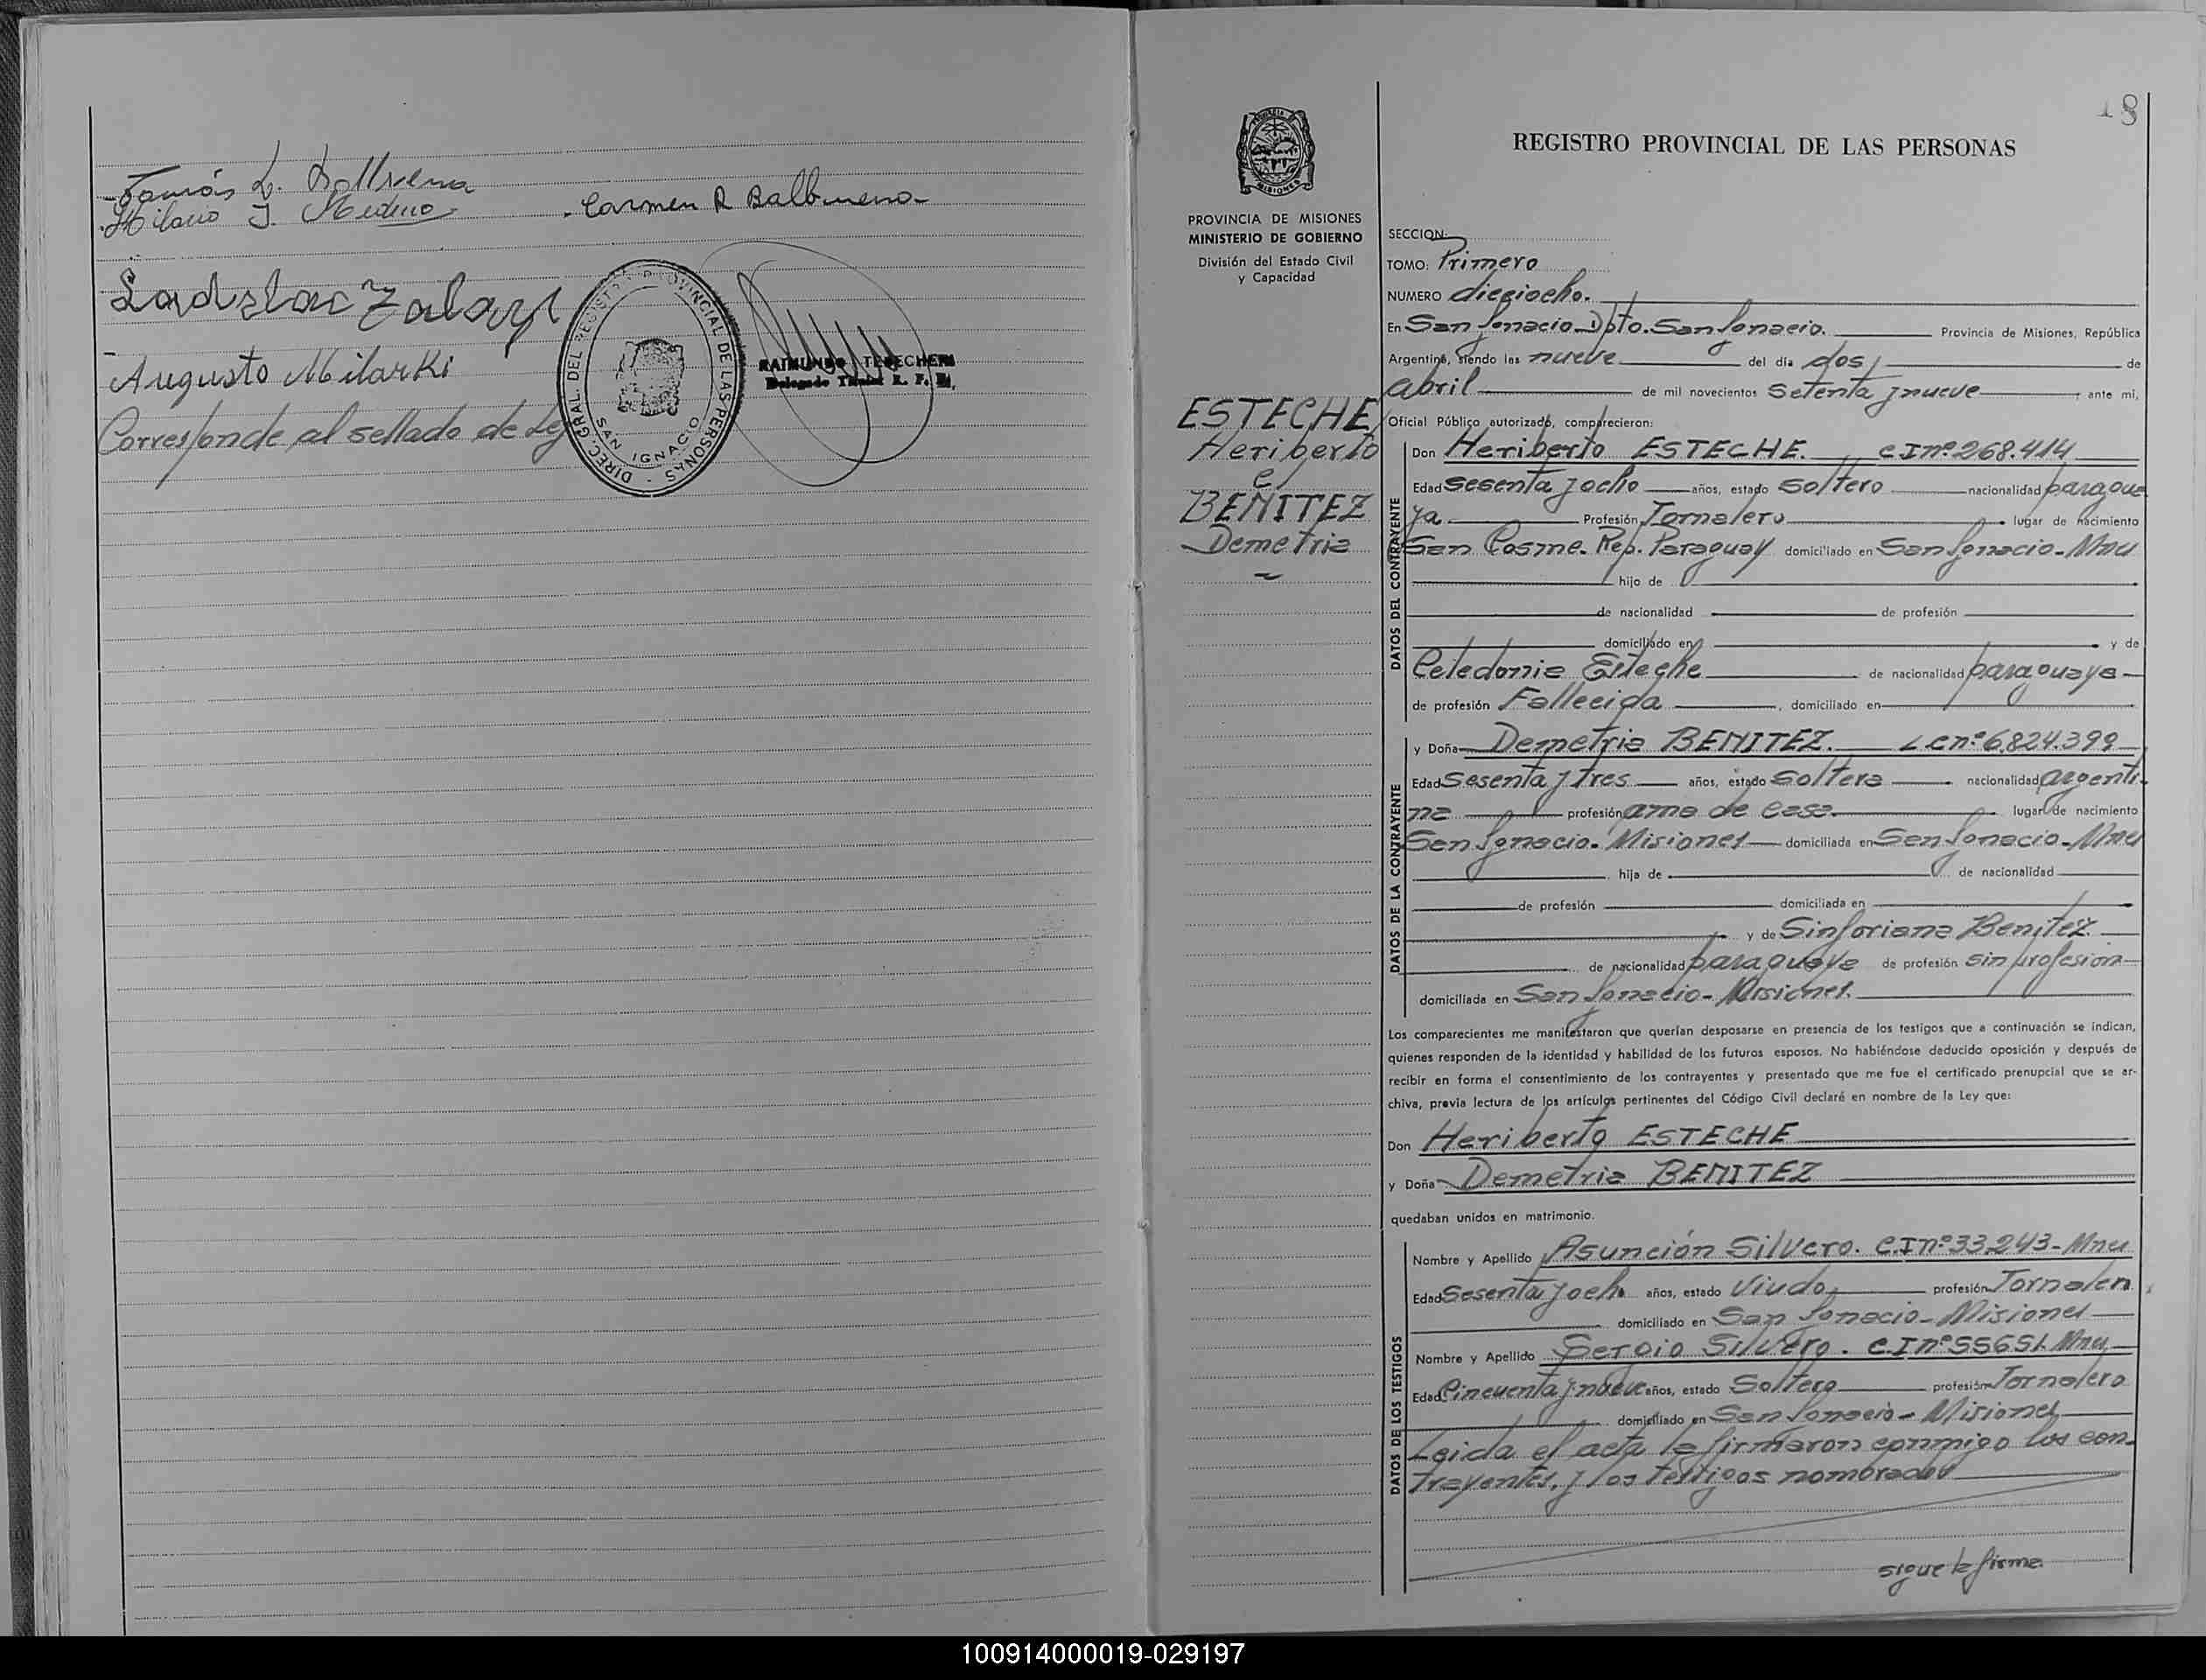 Tomás L. Balbuena
Hilario J. Medina
Carmen R Balbuena
Ladislac Zalayz
Augusto Milarki
Corresponde al sellado de Ley
DIREC. GRAL. DEL REGISTRO PROVINCIAL DE LAS PERSONAS
SAN IGNACIO
RAIMUNDO
Delegado Titular R. P. P.
18
REGISTRO PROVINCIAL DE LAS PERSONAS
PROVINCIA DE MISIONES
MINISTERIO DE GOBIERNO
División del Estado Civil
y Capacidad
ESTECHE
Heriberto
c/
BENITEZ
Demetria
SECCION:
TOMO: Primero
NUMERO dieciocho.
En San Ignacio Dpto. San Ignacio. Provincia de Misiones, República
Argentina, siendo las nueve del día dos de
abril de mil novecientos setenta y nueve, ante mi,
Oficial Público autorizado, comparecieron:
DATOS DEL CONTRAYENTE
Don Heriberto ESTECHE. C I nº 268.414
Edad sesenta y ocho años, estado soltero nacionalidad paragua
ya Profesión Jornalero lugar de nacimiento
San Cosme. Rep. Paraguay domiciliado en San Ignacio - Mnes
hijo de
de nacionalidad de profesión
domiciliado en y de
Celedonia Esteche de nacionalidad paraguaya
de profesión Fallecida, domiciliado en
DATOS DE LA CONTRAYENTE
y Doña Demetria BENITEZ. L C nº 6.824.399
Edad sesenta y tres años, estado soltera nacionalidad argenti-
na profesión ama de casa. lugar de nacimiento
San Ignacio. Misiones domiciliada en San Ignacio - Mnes
hija de de nacionalidad
de profesión domiciliada en
y de Sinforiana Benitez.
de nacionalidad paraguaya de profesión sin profesion
domiciliada en San Ignacio - Misiones.
Los comparecientes me manifestaron que querían desposarse en presencia de los testigos que a continuación se indican,
quienes responden de la identidad y habilidad de los futuros esposos. No habiéndose deducido oposición y después de
recibir en forma el consentimiento de los contrayentes y presentado que me fue el certificado prenupcial que se ar-
chiva, previa lectura de los artículos pertinentes del Código Civil declaré en nombre de la Ley que:
Don Heriberto ESTECHE
y Doña Demetria BENITEZ
quedaban unidos en matrimonio.
DATOS DE LOS TESTIGOS
Nombre y Apellido Asunción Silvero. C.I nº 33.243 - Mnes
Edad Sesenta y ocho años, estado Viudo, profesión Jornalero
domiciliado en San Ignacio - Misiones
Nombre y Apellido Sergio Silvero. C.I nº 55651 Mnes
Edad Cincuenta y nueve años, estado Soltero profesión Jornalero
domiciliado en San Ignacio - Misiones
Leida el acta la firmaron conmigo los con-
trayentes, y los testigos nombrados
sigue la firma.
100914000019-029197